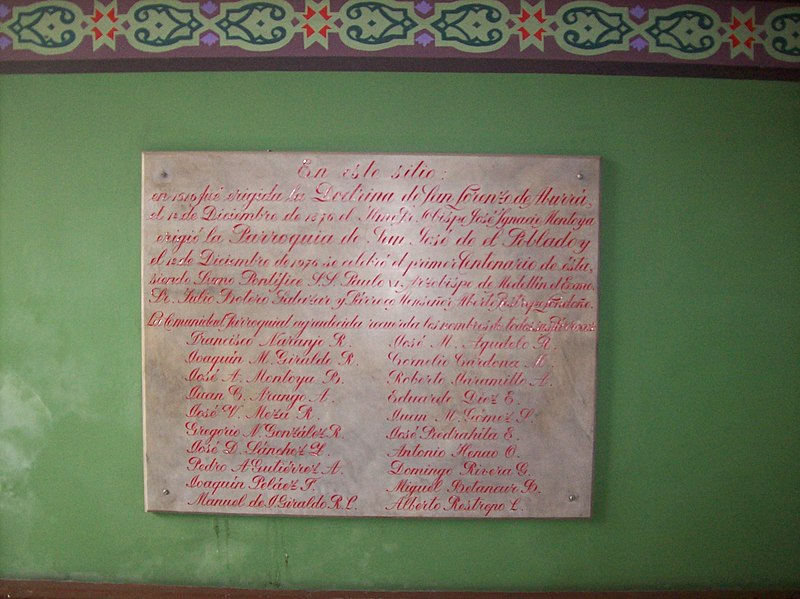 En este sitio:
en 1616 fué erigida la Doctrina de San Lorenzo de Aburrá,
el 12 de Diciembre de 1876 el Ilmo. Sr. Obispo José Ignacio Montoya
erigió la Parroquia de San José de el Poblado y
el 12 de Diciembre de 1976 se celebró el primer Centenario de ésta,
siendo Sumo Pontífice S.S. Paulo VI, Arzobispo de Medellín el Excmo.
Sr. Tulio Botero Salazar y Párroco Monseñor Alberto Restrepo Londoño.
La Comunidad Parroquial agradecida recuerda los nombres de todos sus Párrocos
Francisco Naranjo R. José M. Agudelo R.
Joaquín M. Giraldo R. Cornelio Cardona M.
José A. Montoya B. Roberto Jaramillo A.
Juan C. Arango A. Eduardo Diez E.
José V. Meza R. Juan M. Gómez S.
Gregorio N. González R. José Piedrahita E.
José D. Sánchez L. Antonio Henao O.
Pedro A Gutiérrez A. Domingo Rivera G.
Joaquín Peláez T. Miguel Betancur B.
Manuel de J Giraldo R. L. Alberto Restrepo L.